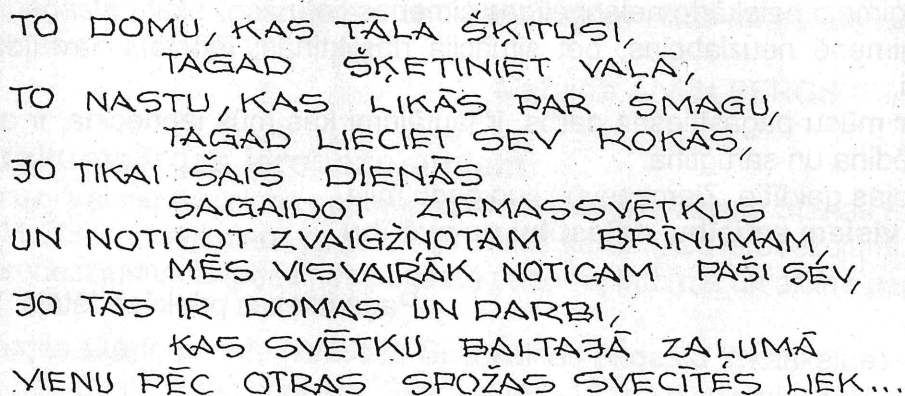 TO DOMU, KAS TĀLA ŠĶITUSI,
TAGAD ŠĶETINIET VAĻĀ,
TO NASTU, KAS LIKĀS PAR SMAGU,
TAGAD LIECIET SEV ROKĀS,
JO TIKAI ŠAIS DIENĀS
SAGAIDOT ZIEMASSVĒTKUS
UN NOTICOT ZVAIGŽŅOTAM BRĪNUMAM,
MĒS VISVAIRĀK NOTICAM PAŠI SEV,
JO TĀS IR DOMAS UN DARBI,
KAS SVĒTKU BALTAJĀ ZAĻUMĀ
VIENU PĒC OTRAS SPOŽAS SVECĪTĒS LIEK...